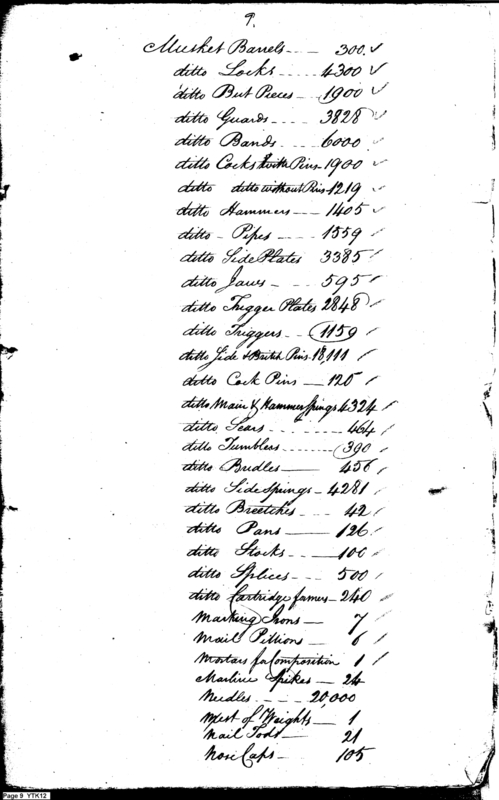 9.
Musket Barrels 300
ditto Locks 4300
ditto But Pieces 1900
ditto Guards 3828
ditto Bands 6000
ditto Cocks with Pins 1900
ditto ditto without Pins 1219
ditto Hammers 1405
ditto Pipes 1559
ditto Side Plates 3385
ditto Jaws 595
ditto Trigger Plates 2848
ditto Triggers 1159
ditto Side & Britch Pins 18,111
ditto Cock Pins 120
ditto Main & Hammer Springs 4324
ditto Sears 464
ditto Tumblers 390
ditto Bridles 456
ditto Side Springs 4281
ditto Breetches 42
ditto Pans 126
ditto Stocks 106
ditto Splices 500
ditto Cartridge formers 240
Marking Irons 7
Mail Pillions 6
Mortars for Composition 1
Marline Spikes 24
Needles 20,000
of Weights 1
Nail Tods 21
Nose Caps 105
Page 9 YTK12